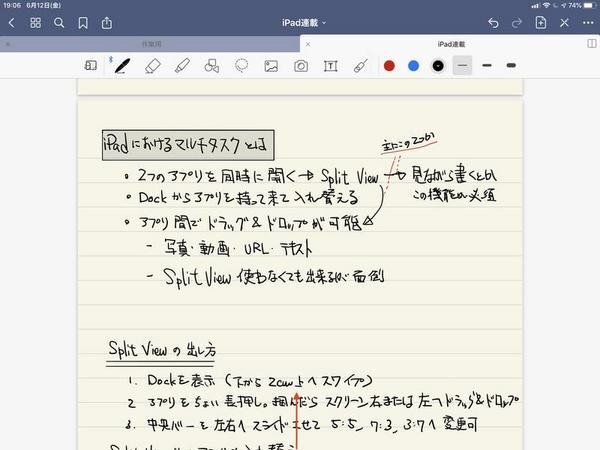 19:06 6月12日(金) 74%
iPad連載
作業用
iPad連載
iPadにおけるマルチタスクとは
主にこの2つが
2つのアプリを同時に開く → Split View → 見ながら書くとか
Dockからアプリを持って来て入れ替える この機能が必須
アプリ間でドラッグ&ドロップが可能
- 写真・動画・URL・テキスト
- Split View 使わなくても出来るが面倒
Split View の出し方
1. Dockを表示 (下から2cm上へスワイプ)
2 アプリをちょい長押し。掴んだらスクリーン右または左へドラッグ&ドロップ
3. 中央バーを左右へスライドさせて 5:5, 7:3, 3:7へ変更可